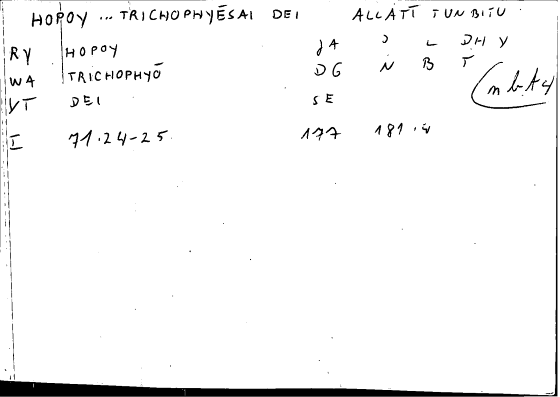 HOPOY ... TRICHOPHYĒSAI DEI ALLATĪ TUNBITU
RY HOPOY JA ʾ L DHY
WA TRICHOPHYŌ DG N B T
VT DEI SE
I 71.24-25 177 181.4